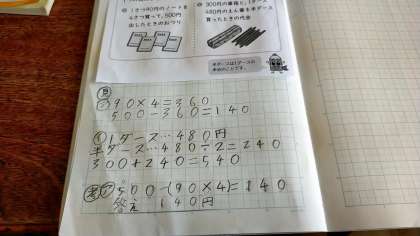 1さつ90円のノートを
4さつ買って、500円
出したときのおつり
300円の筆箱と、1ダース
480円のえん筆を半ダース
買ったときの代金
半ダースは1ダースの
半分のことです。
90×4=360
500-360=140
1ダース…480円
半ダース…480÷2=240
300+240=540
500-(90×4)=140
答え 140円